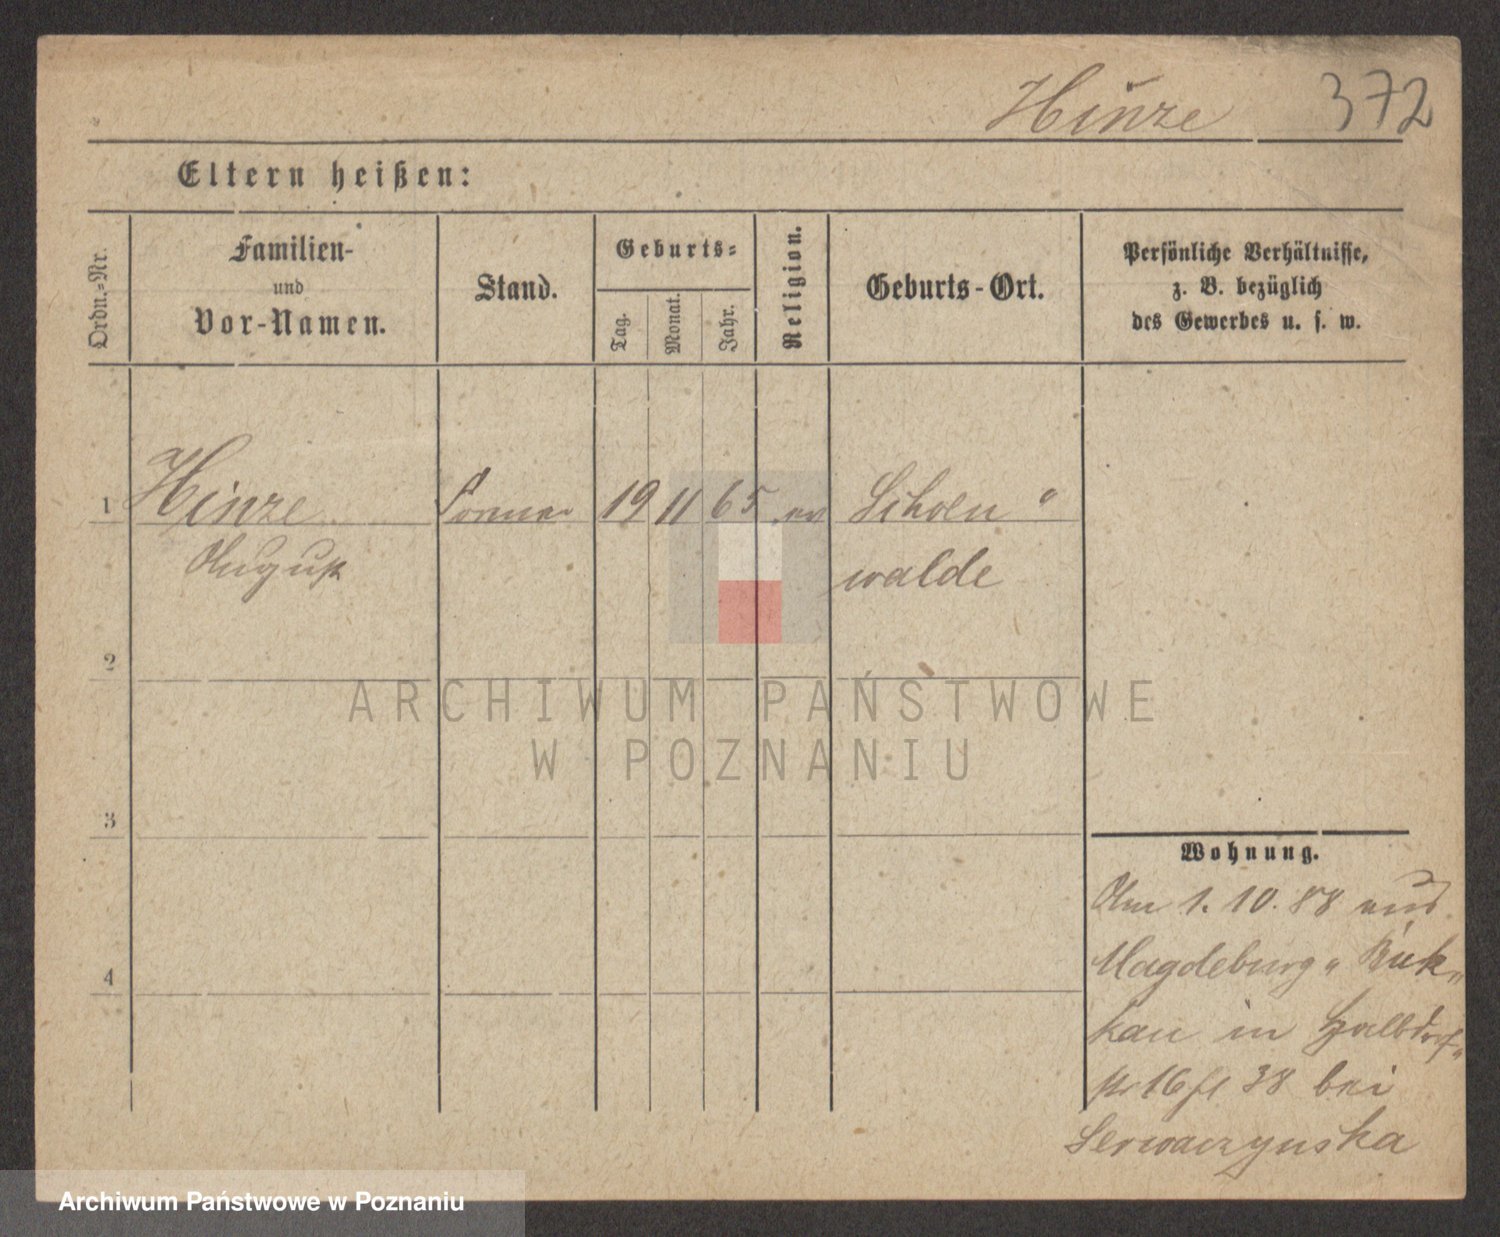 Hinze 372
Eltern heißen:
Ordn.-Nr.
Familien-
und
Vor-Namen.
Stand.
Geburts-
Tag.
Monat.
Jahr.
Religion.
Geburts-Ort.
Persönliche Verhältnisse,
z. B. bezüglich
des Gewerbes u. s. w.
1 Hinze Former 19 11 65 ev Schoen"
August walde
2
3
4
Wohnung.
Am 1. 10. 88 aus
Magdeburg"
in Halbdorf"
str 16 38 bei
Serwaczynska
ARCHIWUM PAŃSTWOWE
W POZNANIU
Archiwum Państwowe w Poznaniu